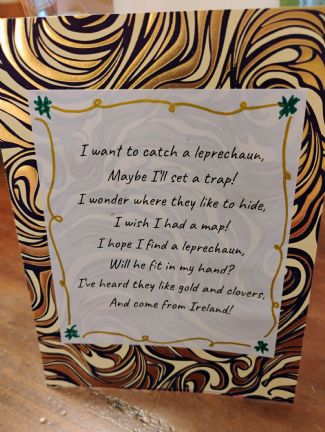 I want to catch a leprechaun,
Maybe I'll set a trap!
I wonder where they like to hide,
I wish I had a map!
I hope I find a leprechaun,
Will he fit in my hand?
I've heard they like gold and clovers,
And come from Ireland!